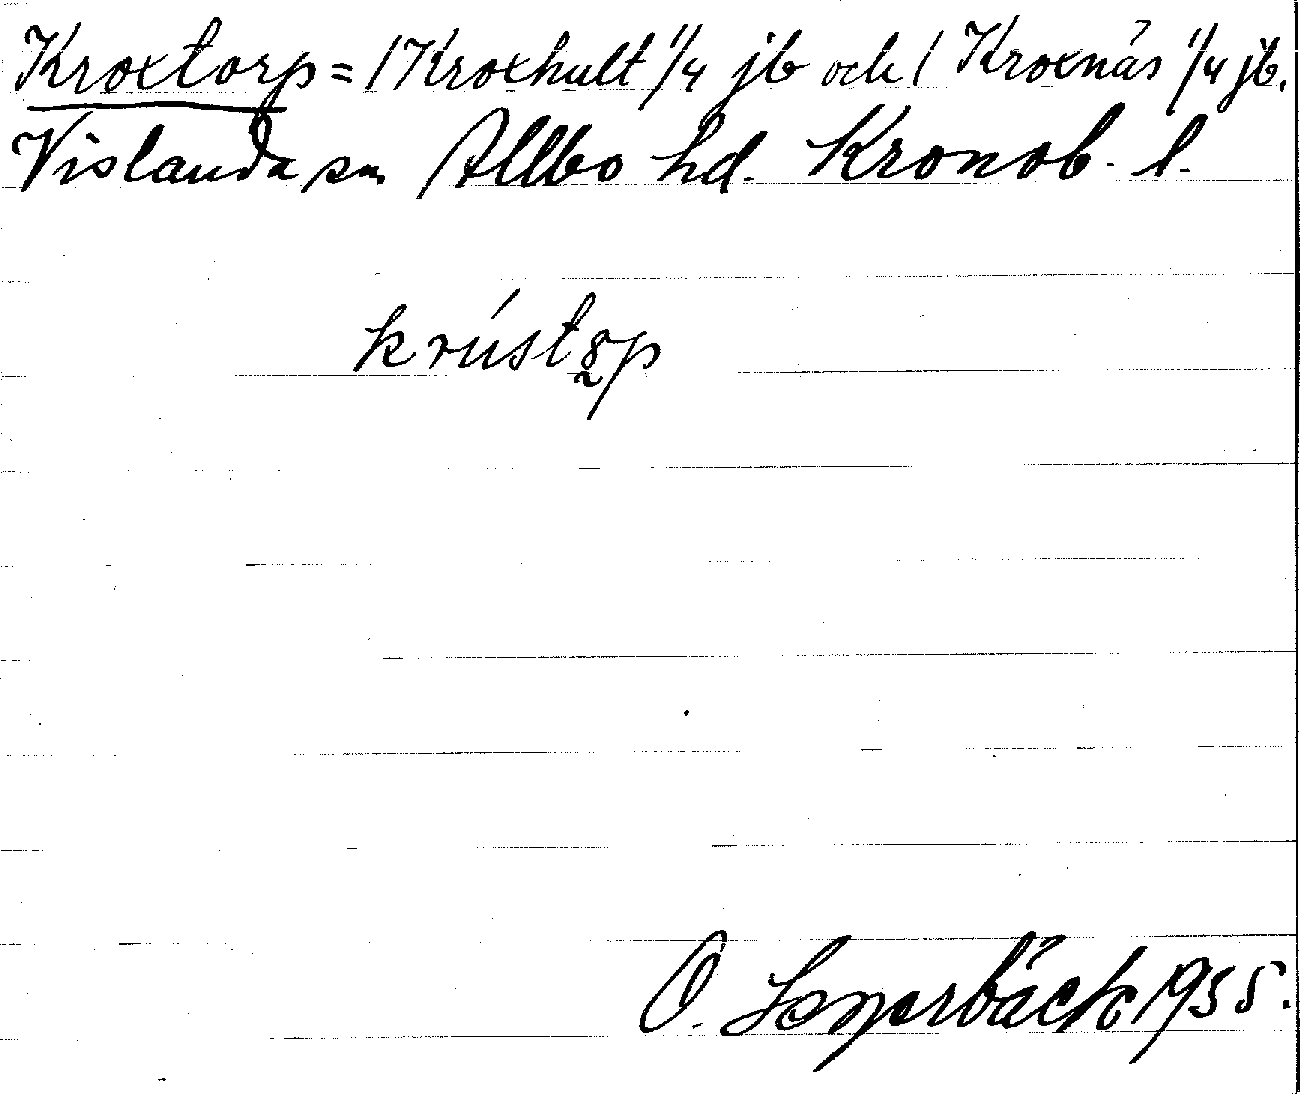 Kroxtorp = /Kroxhult 1/4 jb och / Kroxnäs 1/4 jb.
Vislanda sn Allbo hd. Kronob. l.
krúst p
O. 1955.